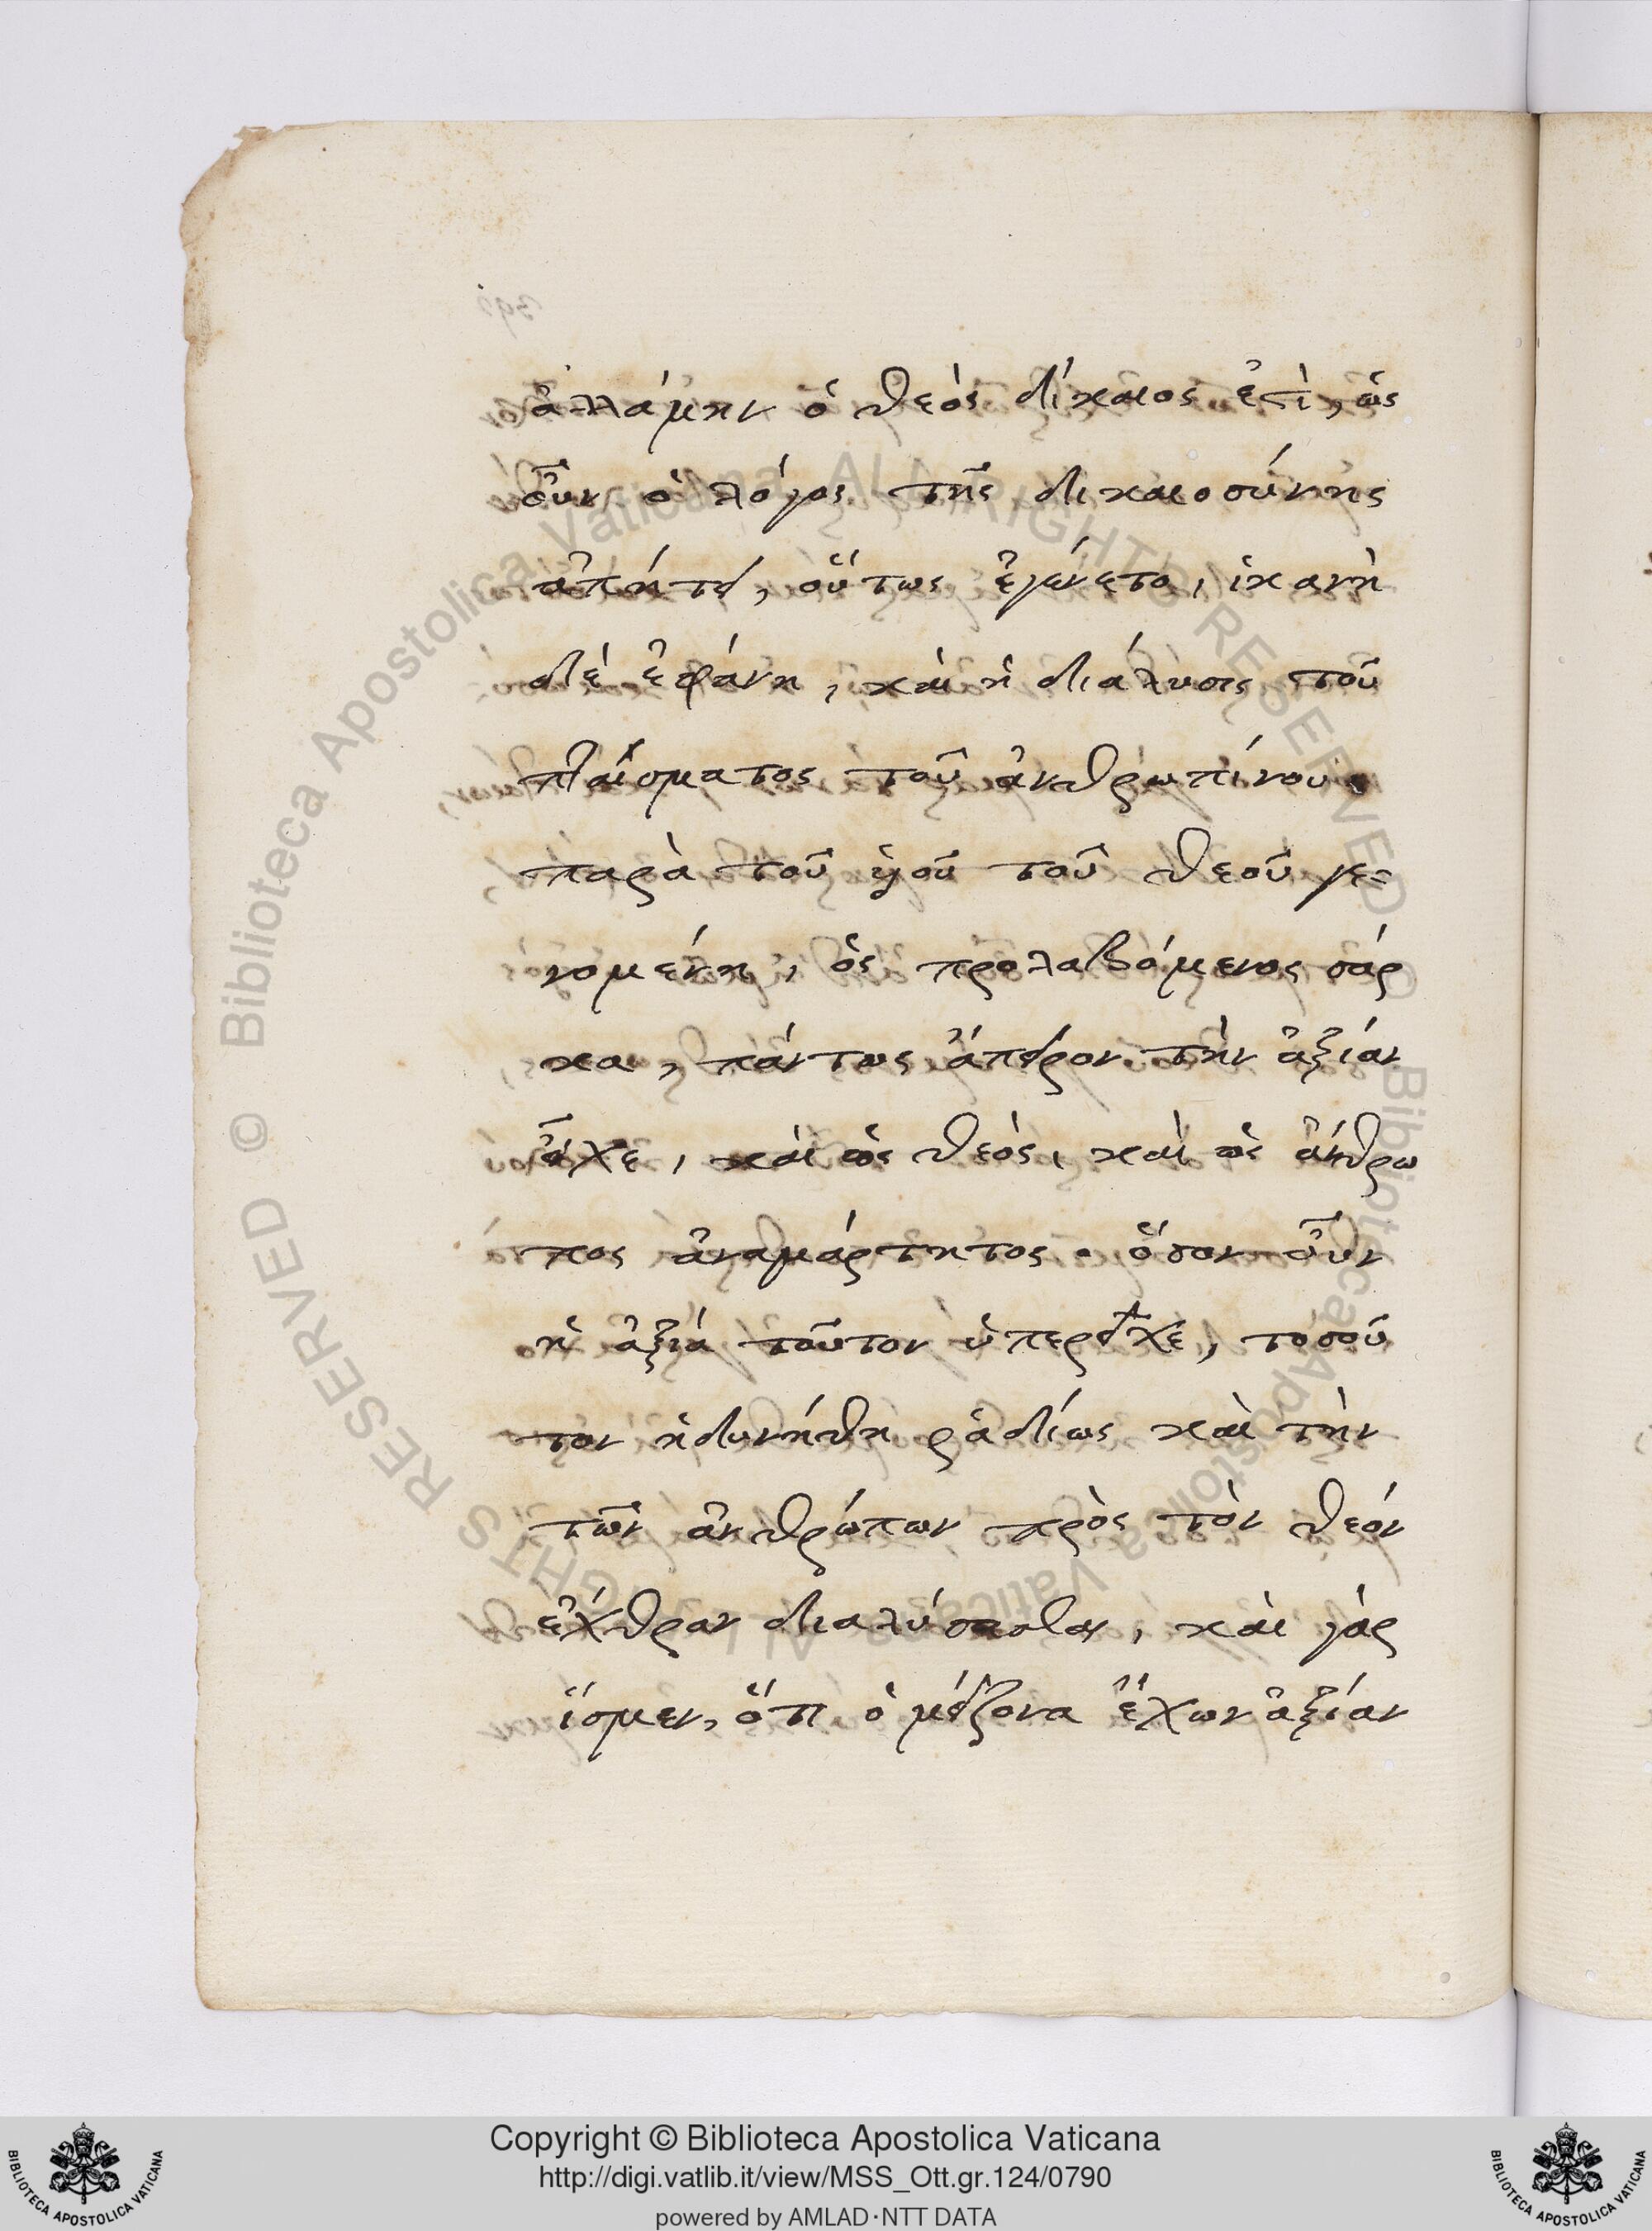 ἀλλάμην ὁ θεὸς δίκαιος ἐστὶ, ὡς
οὖν ὁ λόγος τῆς δικαιοσύνης
ἀπῄτει, οὕτως ἐγένετο, ἱκανὴ
δὲ ἐφάνη, καὶ ἡ διάλυσις τοῦ
πταίσματος τοῦ ἀνθρωπίνου
παρὰ τοῦ ὑιοῦ τοῦ θεοῦ γε-
νομένη, ὃς προλαβόμενος σάρ
κα, πάντως ἄπειρον τὴν ἀξίαν
εἶχε, καὶ ὡς θεὸς, καὶ ὡς ἄνθρω
πος ἀναμάρτητος. ὅσον οὖν
ἡ ἀξιά τοῦτον ὑπερεῖχε, τοσοῦ
τον ἠδυνήθη ῥαδίως καὶ τὴν
τῶν ἀνθρώπων πρὸς τὸν θεόν
ἔχθραν διαλύσασθαι, καὶ γὰρ
ἴσμεν, ὅτι ὁ μείζονα ἔχων ἀξίαν
Copyright © Biblioteca Apostolica Vaticana
http://digi.vatlib.it/view/MSS_Ott.gr.124/0790
powered by AMLAD·NTT DATA
Biblioteca Apostolica Vaticana ALL RIGHTS RESERVED ©
Biblioteca Apostolica Vaticana ALL RIGHTS RESERVED ©
BIBLIOTECA APOSTOLICA VATICANA
BIBLIOTECA APOSTOLICA VATICANA